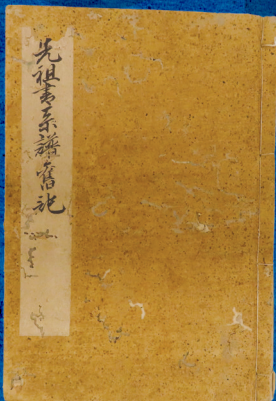 先祖書系譜舊記